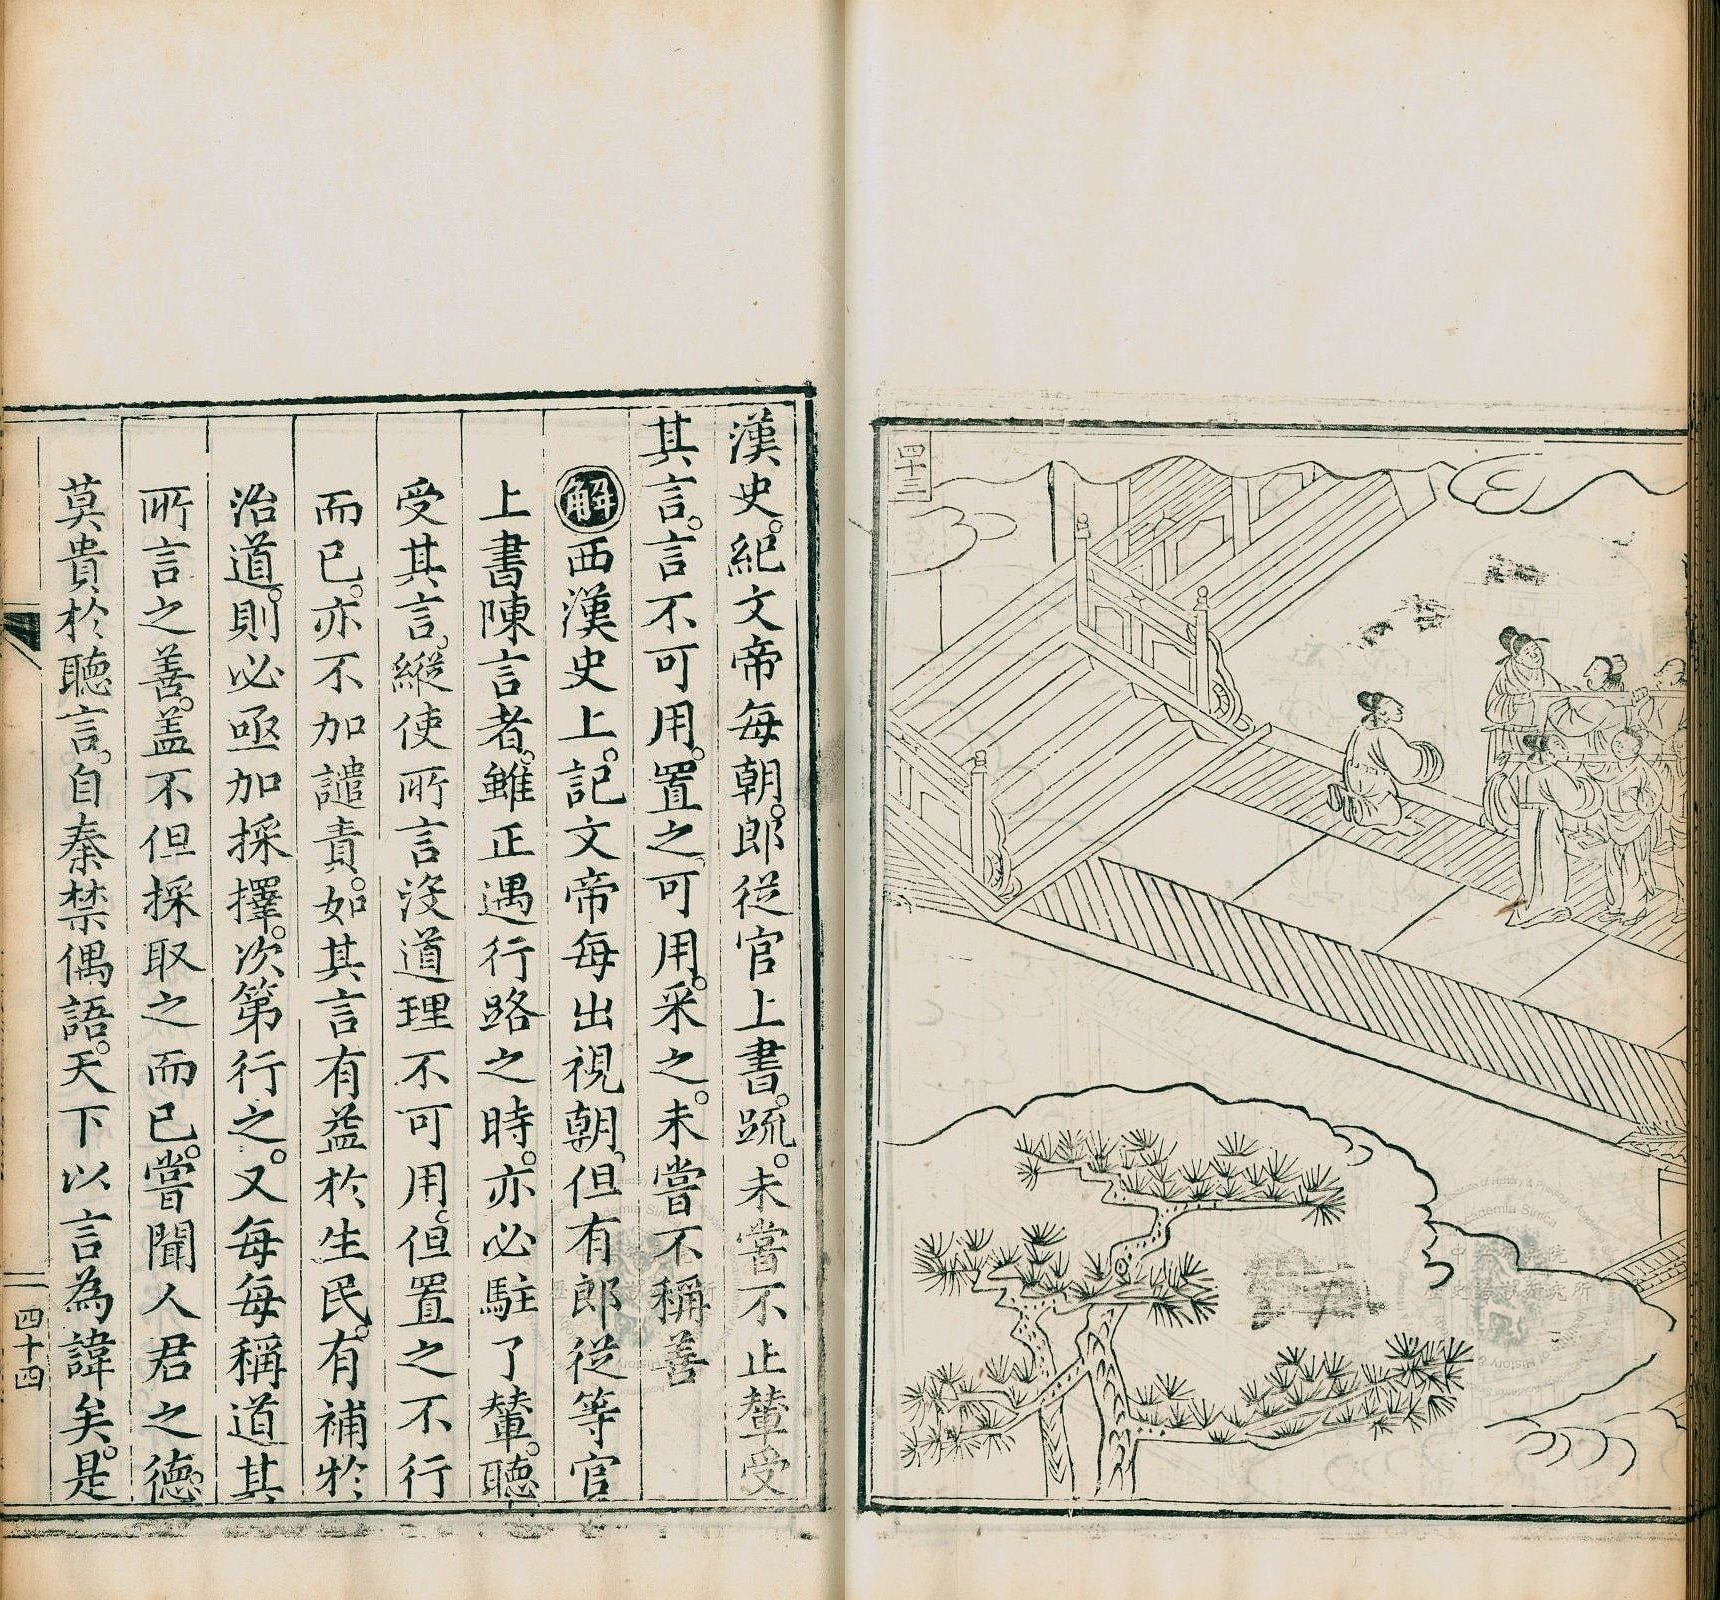 四十三
漢史紀文帝每朝郎從官上書疏未嘗不止輦受
其言言不可用置之可用采之未嘗不稱善
解西漢史上記文帝每出視朝但有郎從等官
上書陳言者雖正遇行路之時亦必駐了輦聽
受其言縱使所言沒道理不可用但置之不行
而已亦不加譴責如其言有益於生民有補於
治道則必亟加採擇次第行之又每每稱道其
所言之善蓋不但採取之而已嘗聞人君之德
莫貴於聽言自秦禁偶語天下以言為諱矣是
四十四